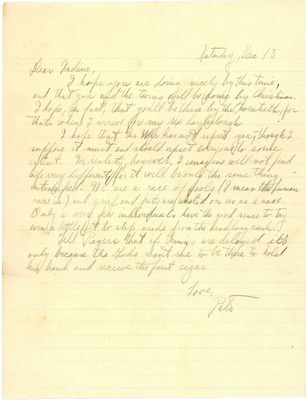 Saturday, Dec 13
Dear Nadine,
I hope you are doing nicely by this time,
and that you and the twins will be home by Christmas.
I hope, in fact, that you'll be there by the twentieth, for
that's when I arrive for my
I hope that the War hasn't upset you, though I
suppose it must and should upset everyone to some
extent. In reality, however, I imagine we'll not find
life very different, for it will be only the same thing
intensified. We are a race of fools (I mean the human
race) and grief and pity are wasted on us, as a race.
Only a very few individuals have the good sense to try
even a little bit to step aside from the headlong rush.
Tell Rogers that if things are delayed it's
only because the Gods want me to be there to hold
his hand and receive the first cigar
Love,
Pete